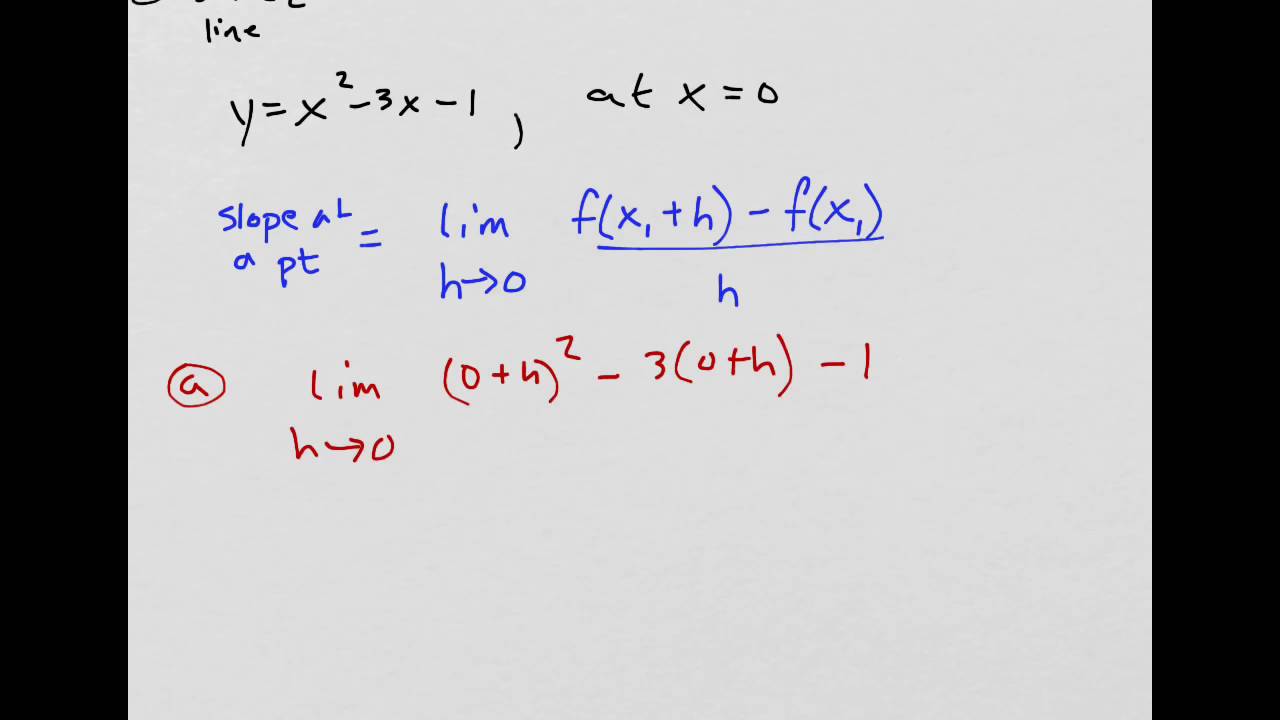 line
y = x² - 3x - 1 , at x = 0
slope at a pt = lim h→0 f(x₁ + h) - f(x₁) / h
(a) lim h→0 (0 + h)² - 3(0 + h) - 1